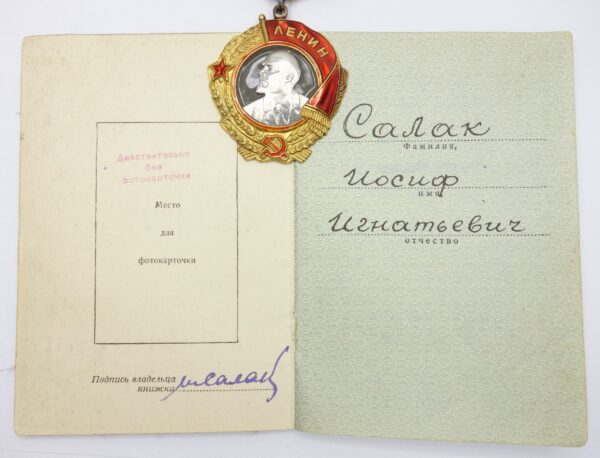 ЛЕНИН
Действительно
без
фотокарточки
Место
для
фотокарточки
Подпись владельца
книжки
иСалак
Салак
Фамилия,
Иосиф
имя
Игнатьевич
отчество